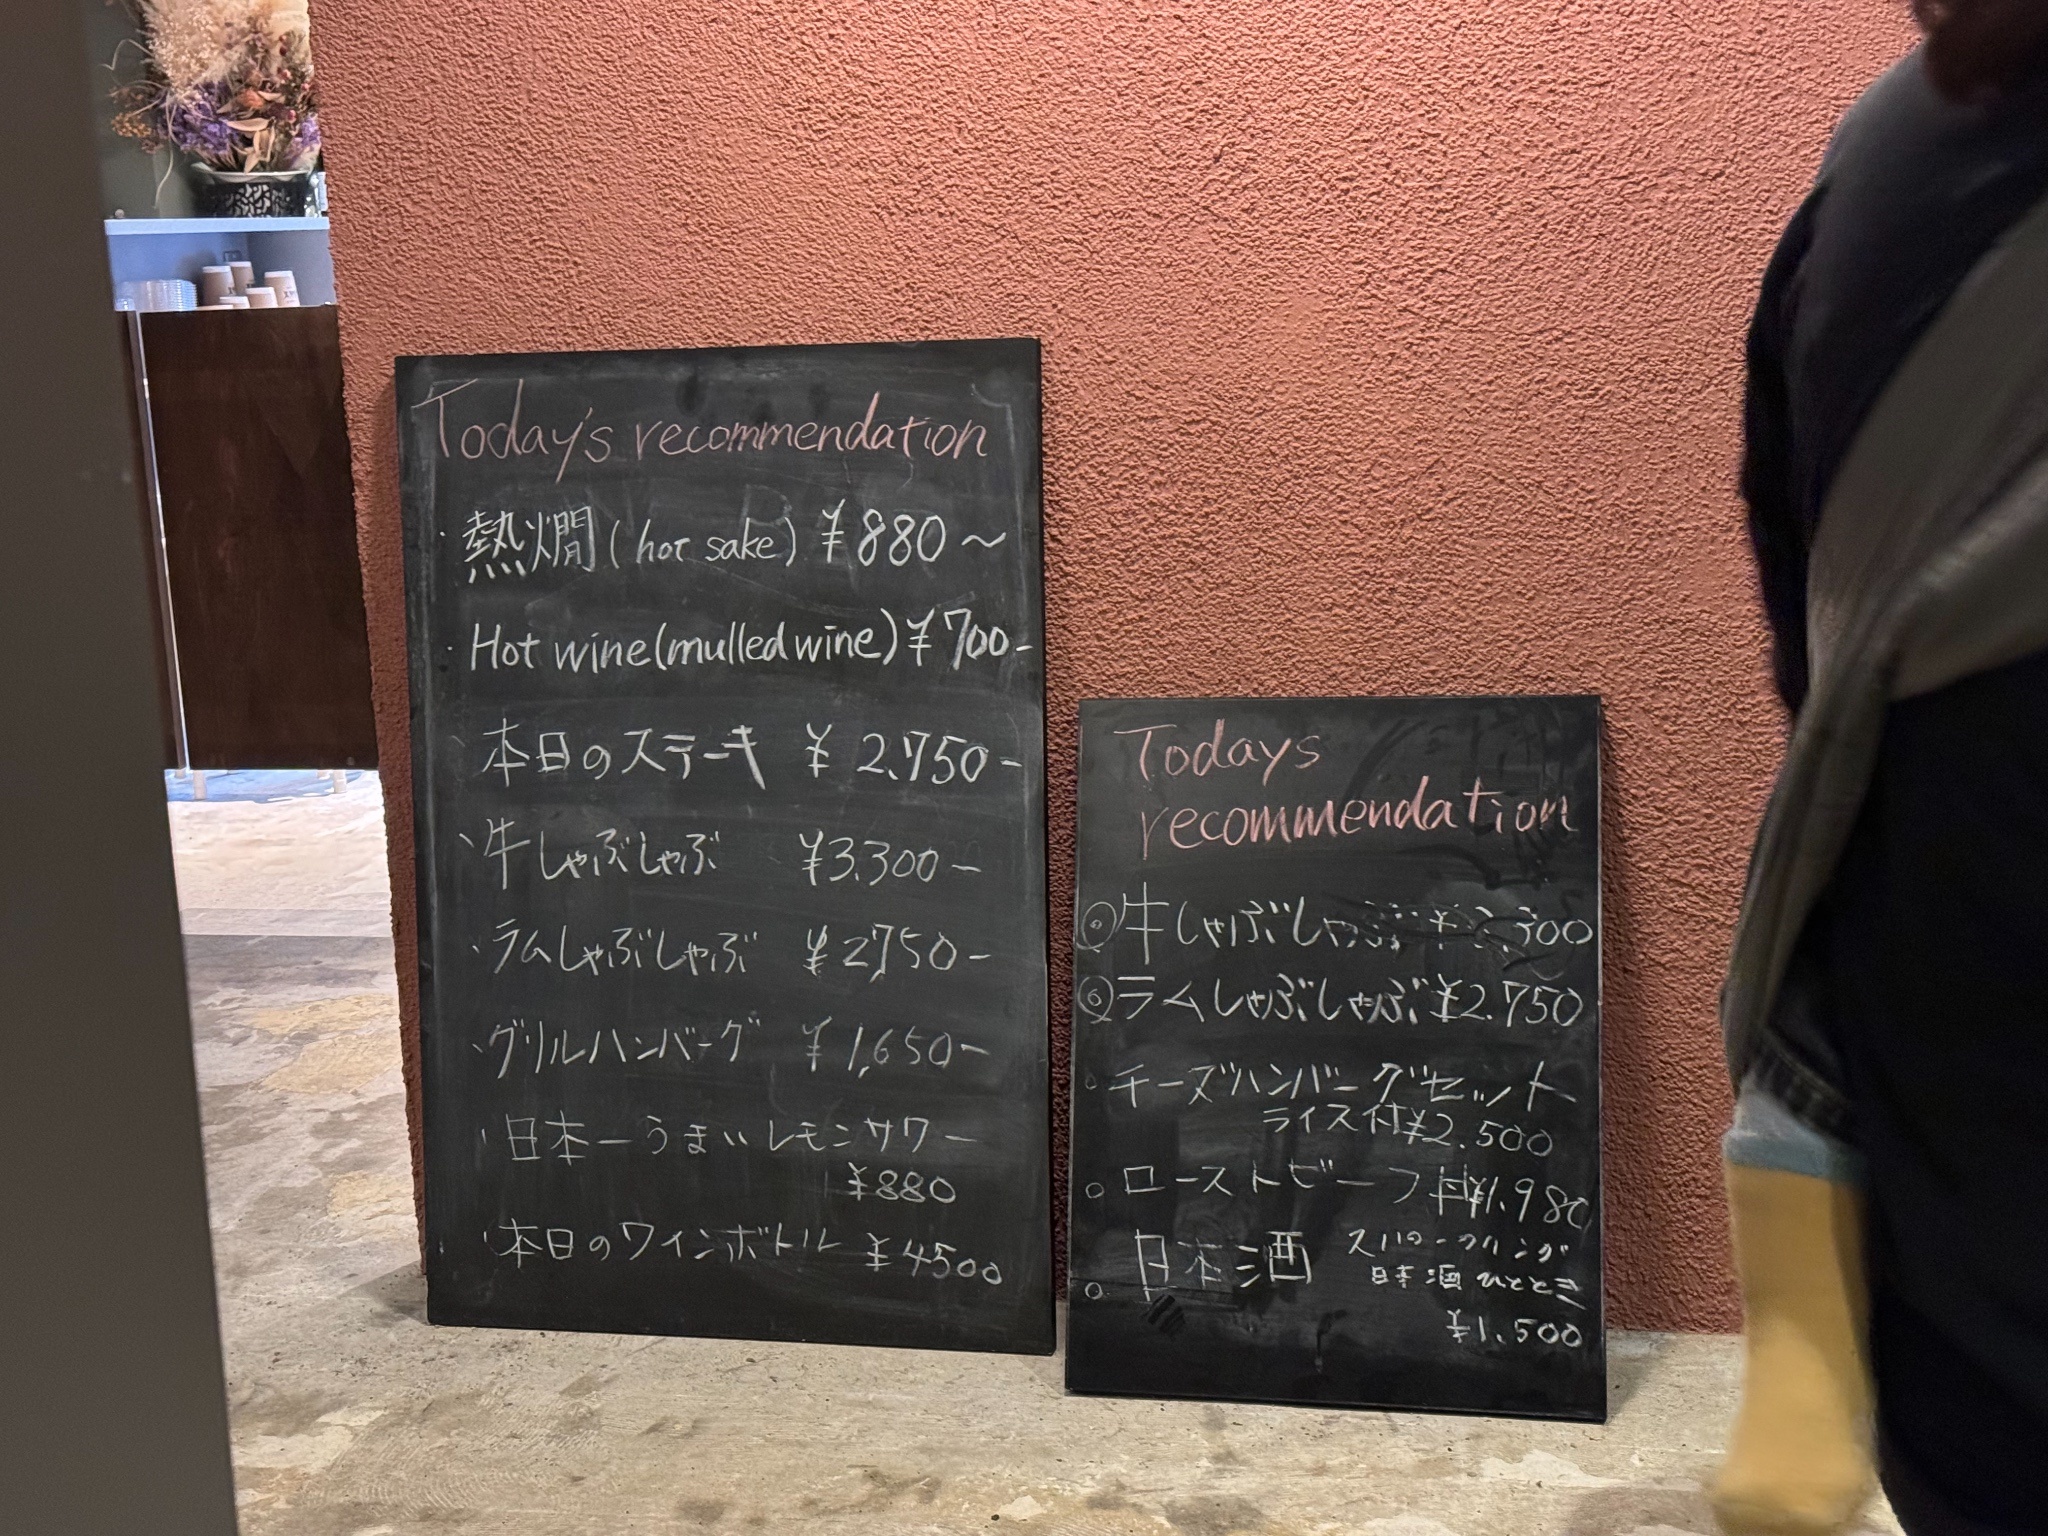 Today's recommendation
・熱燗(hot sake) ¥880〜
・Hot wine(mulled wine) ¥700-
、本日のステーキ ¥2,750-
、牛しゃぶしゃぶ ¥3,300-
、ラムしゃぶしゃぶ ¥2,750-
、グリルハンバーグ ¥1,650-
、日本一うまいレモンサワー
¥880
、本日のワインボトル ¥4500
Todays
recommendation
◎牛しゃぶしゃぶ ¥3,300
◎ラムしゃぶしゃぶ ¥2.750
○チーズハンバーグセット
ライス付¥2.500
○ローストビーフ丼¥1.980
○日本酒
スパークリング
日本酒ひととき
¥1.500